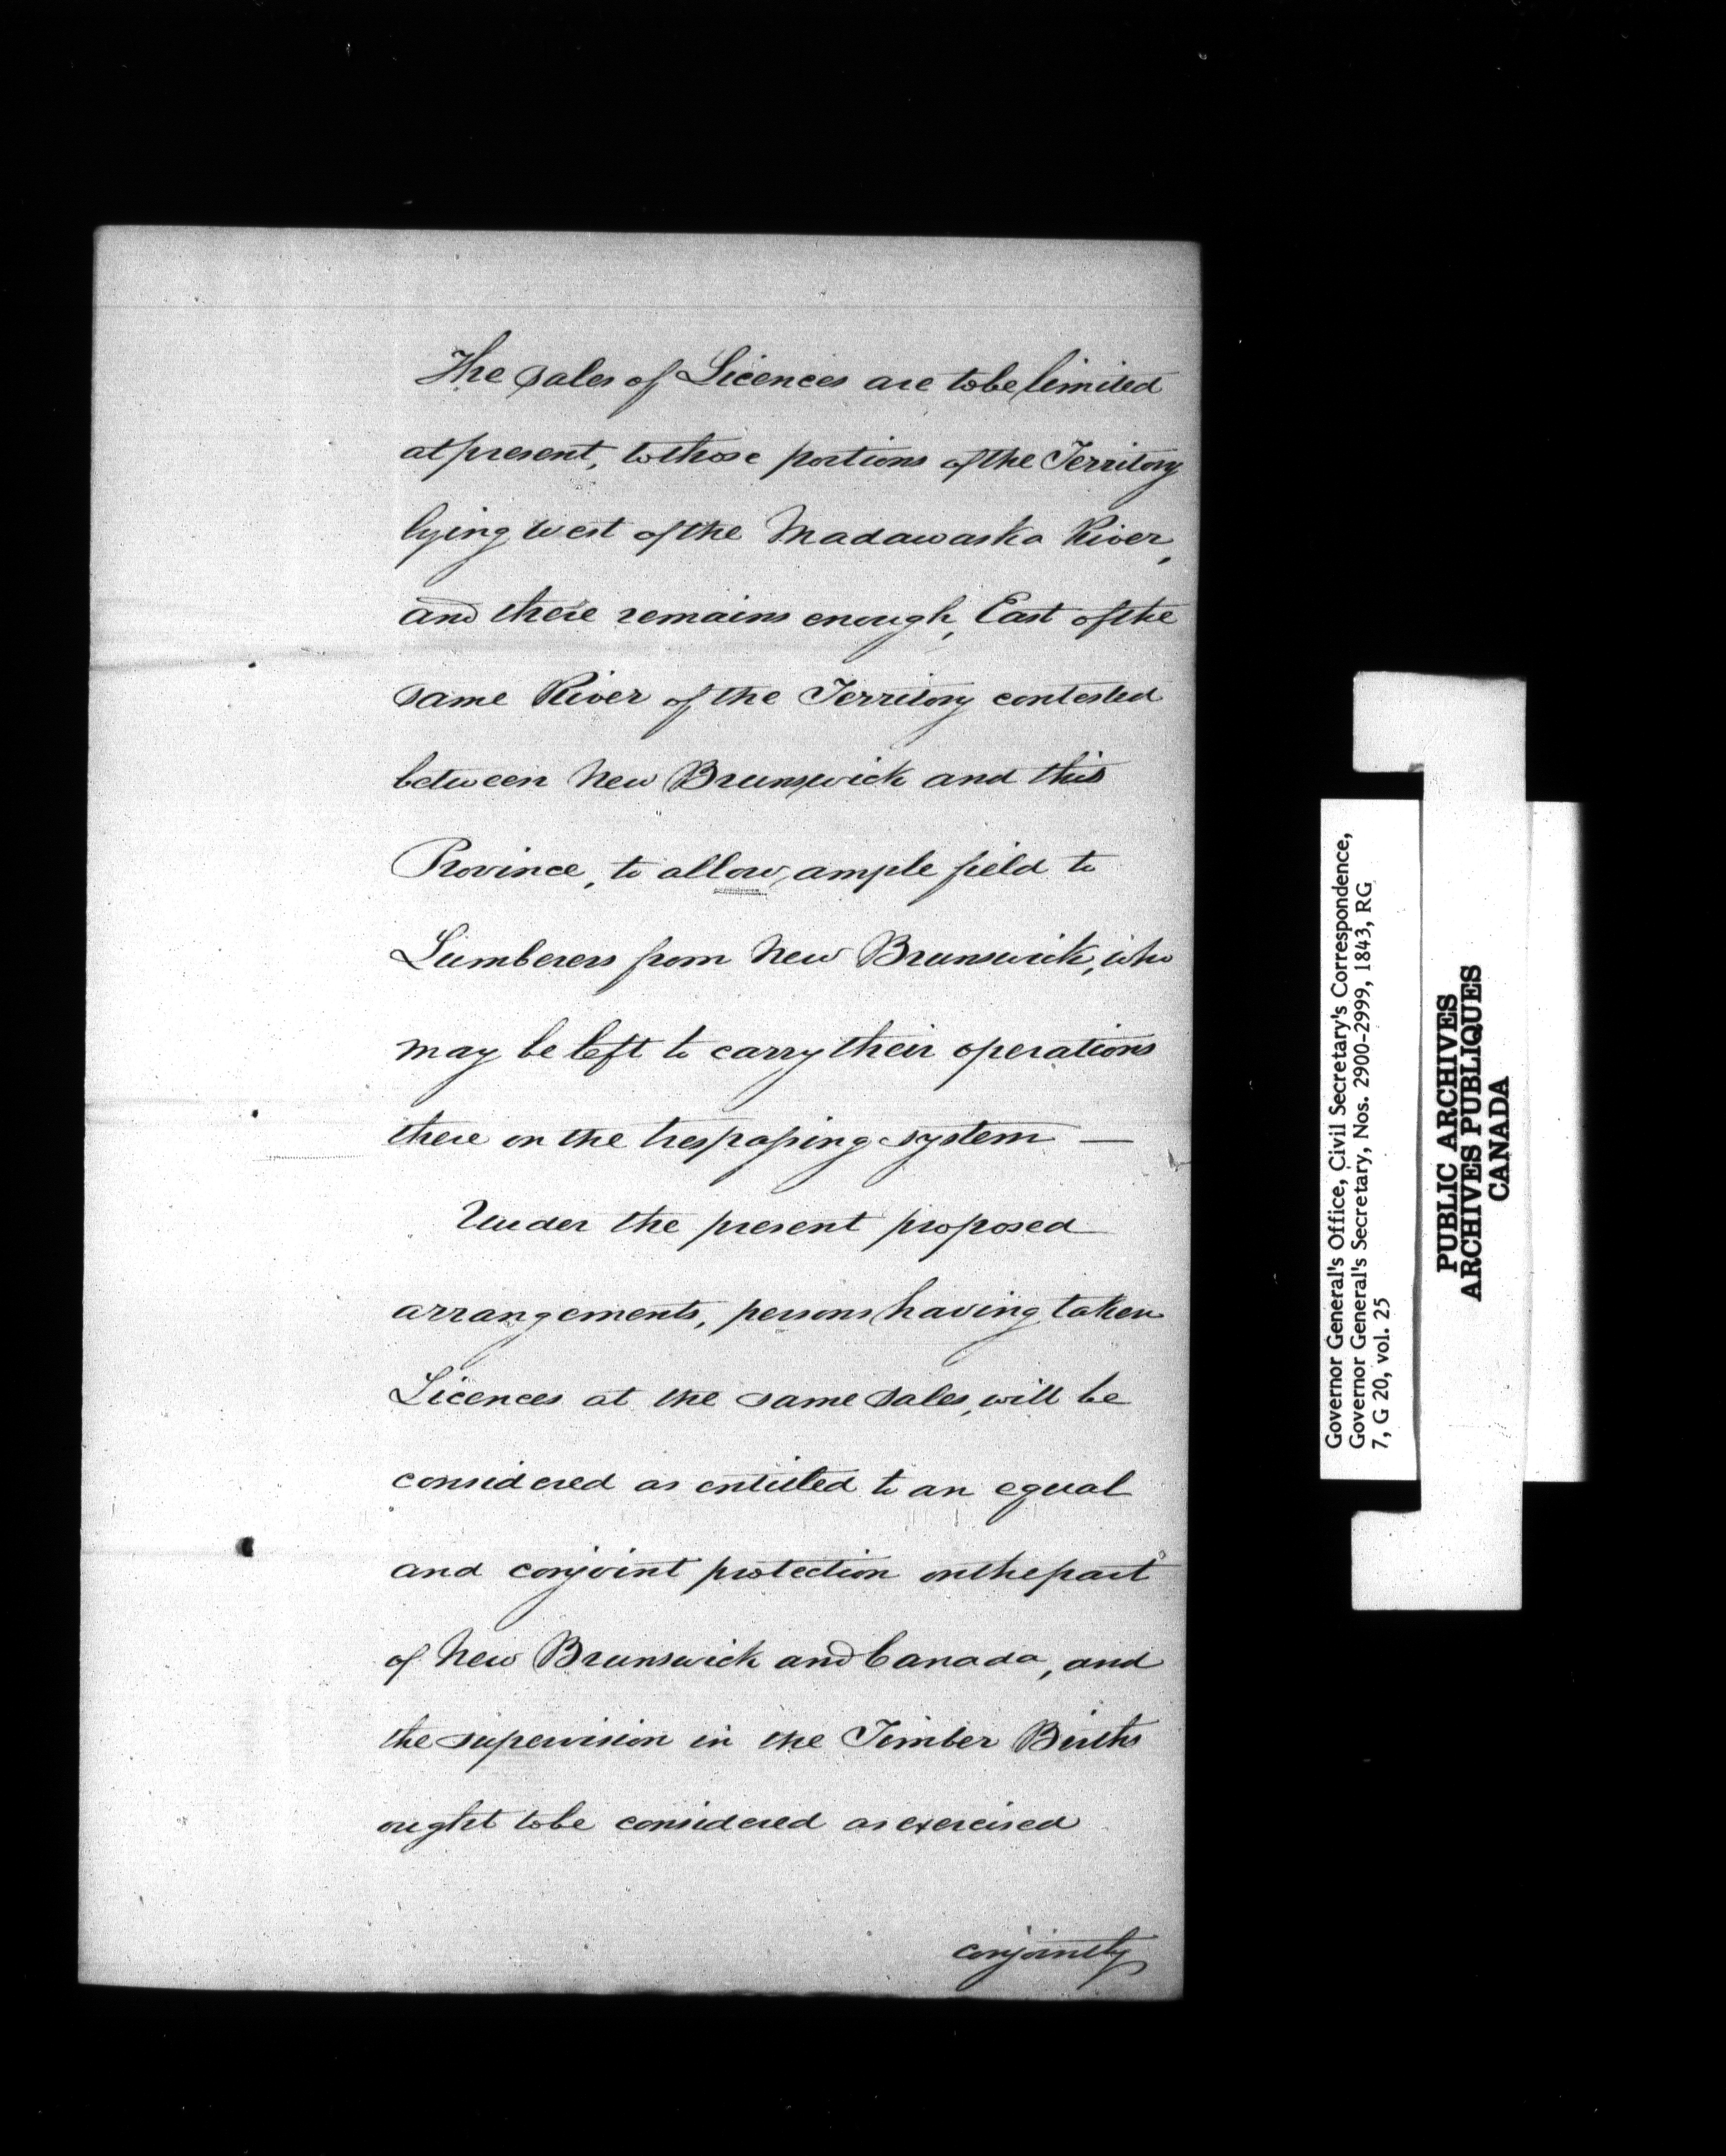 The sales of Licences are to be limited
at present, to those portions of the Territory
lying west of the Madawaska River,
and there remains enough, East of the
same River of the Territory contested
between New Brunswick and this
Province, to allow ample field to
Lumberers from New Brunswick, who
may be left to carry their operations
there on the trespassing system —
Under the present proposed
arrangements, persons having taken
Licences at the same sales, will be
considered as entitled to an equal
and conjoint protection on the part
of New Brunswick and Canada, and
the supervision in the Timber Births
ought to be considered as exercised
conjointly
Governor General's Office, Civil Secretary's Correspondence,
Governor General's Secretary, Nos. 2900-2999, 1843, RG
7, G 20, vol. 25
PUBLIC ARCHIVES
ARCHIVES PUBLIQUES
CANADA